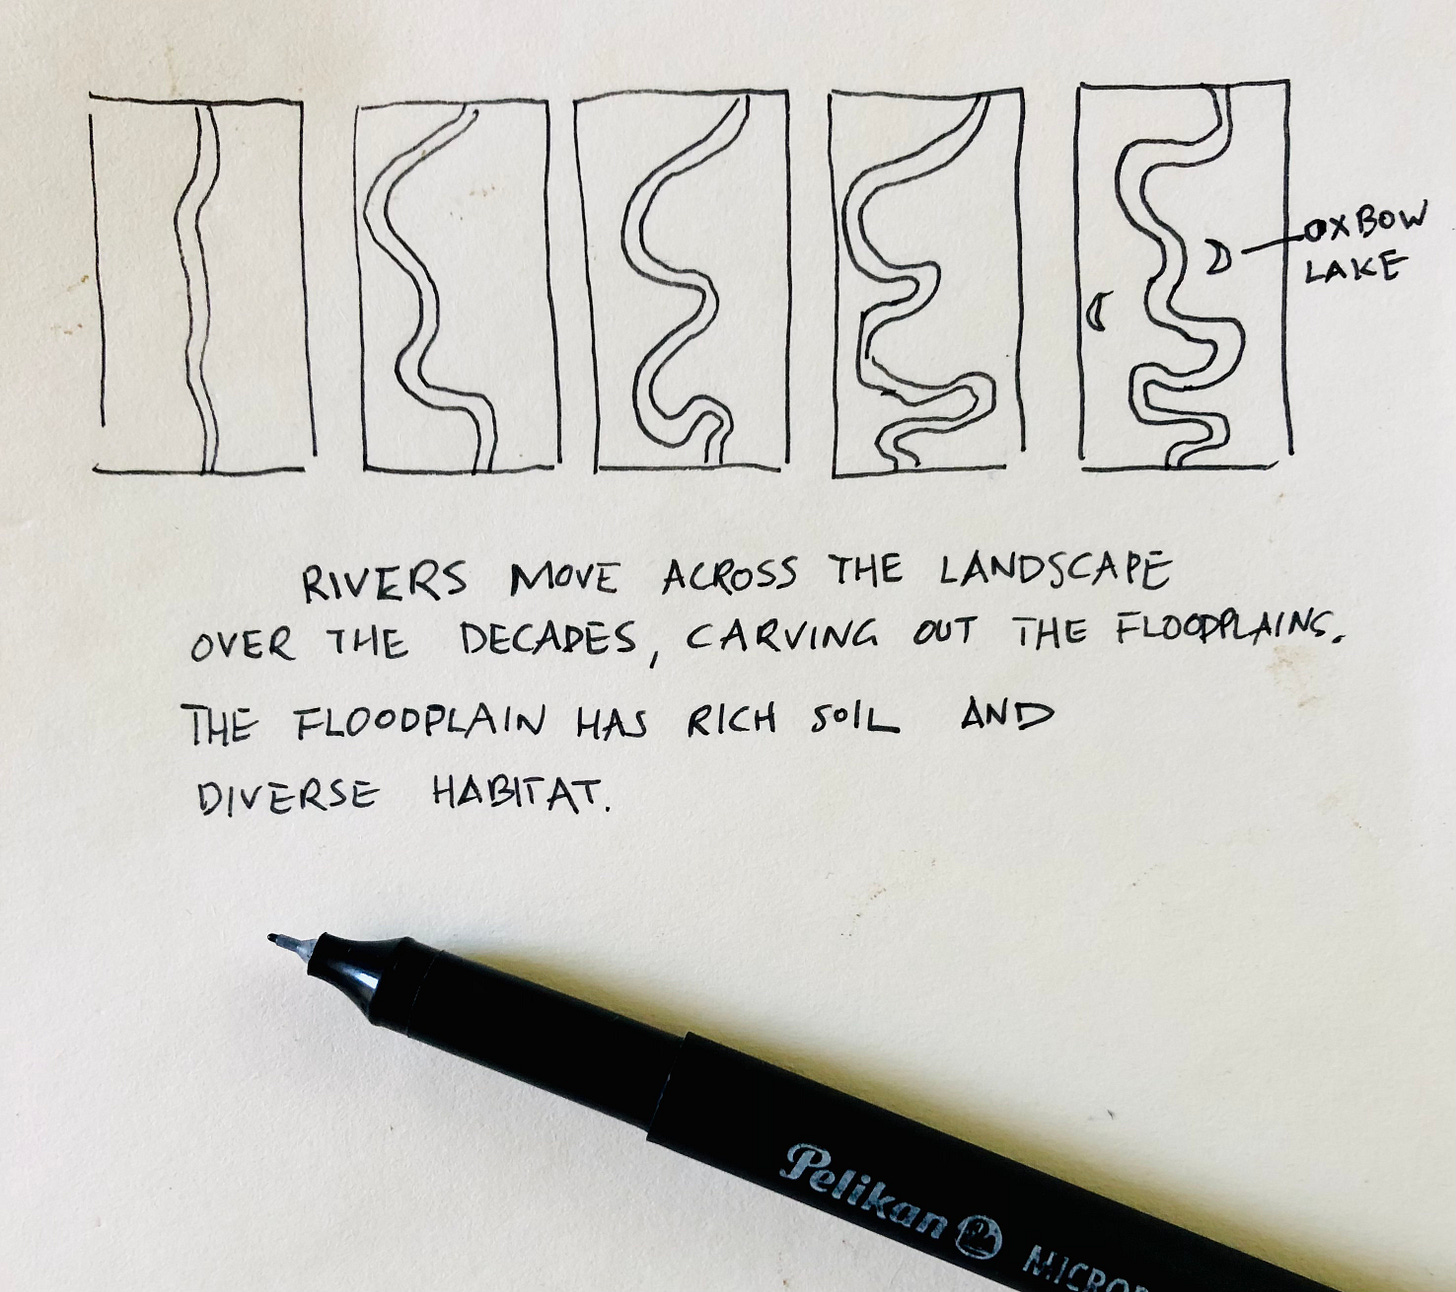 OXBOW
LAKE
RIVERS MOVE ACROSS THE LANDSCAPE
OVER THE DECADES, CARVING OUT THE FLOODPLAINS.
THE FLOODPLAIN HAS RICH SOIL AND
DIVERSE HABITAT.
Pelikan